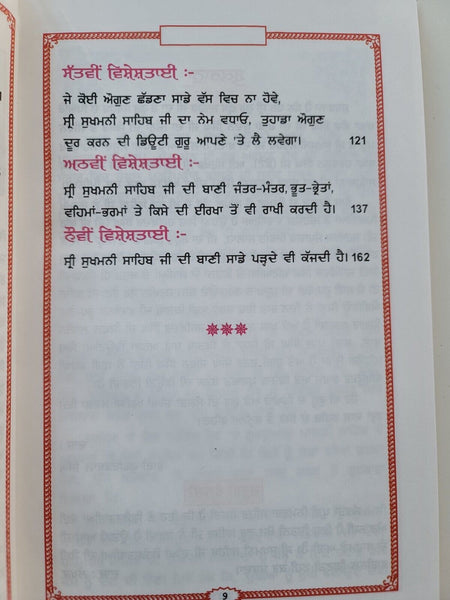 ਸੱਤਵੀਂ ਵਿਸ਼ੇਸ਼ਤਾਈ :-
ਜੇ ਕੋਈ ਔਗੁਣ ਛੱਡਣਾ ਸਾਡੇ ਵੱਸ ਵਿਚ ਨਾ ਹੋਵੇ,
ਸ੍ਰੀ ਸੁਖਮਨੀ ਸਾਹਿਬ ਜੀ ਦਾ ਨੇਮ ਵਧਾਓ, ਤੁਹਾਡਾ ਔਗੁਣ
ਦੂਰ ਕਰਨ ਦੀ ਡਿਊਟੀ ਗੁਰੂ ਆਪਣੇ 'ਤੇ ਲੈ ਲਵੇਗਾ। 121
ਅਠਵੀਂ ਵਿਸ਼ੇਸ਼ਤਾਈ :-
ਸ੍ਰੀ ਸੁਖਮਨੀ ਸਾਹਿਬ ਜੀ ਦੀ ਬਾਣੀ ਜੰਤਰ-ਮੰਤਰ, ਭੂਤ-ਪ੍ਰੇਤਾਂ,
ਵਹਿਮਾਂ-ਭਰਮਾਂ ਤੇ ਕਿਸੇ ਦੀ ਈਰਖਾ ਤੋਂ ਵੀ ਰਾਖੀ ਕਰਦੀ ਹੈ। 137
ਨੌਵੀਂ ਵਿਸ਼ੇਸ਼ਤਾਈ :-
ਸ੍ਰੀ ਸੁਖਮਨੀ ਸਾਹਿਬ ਜੀ ਦੀ ਬਾਣੀ ਸਾਡੇ ਪੜ੍ਹਦੇ ਵੀ ਕੱਜਦੀ ਹੈ। 162
9